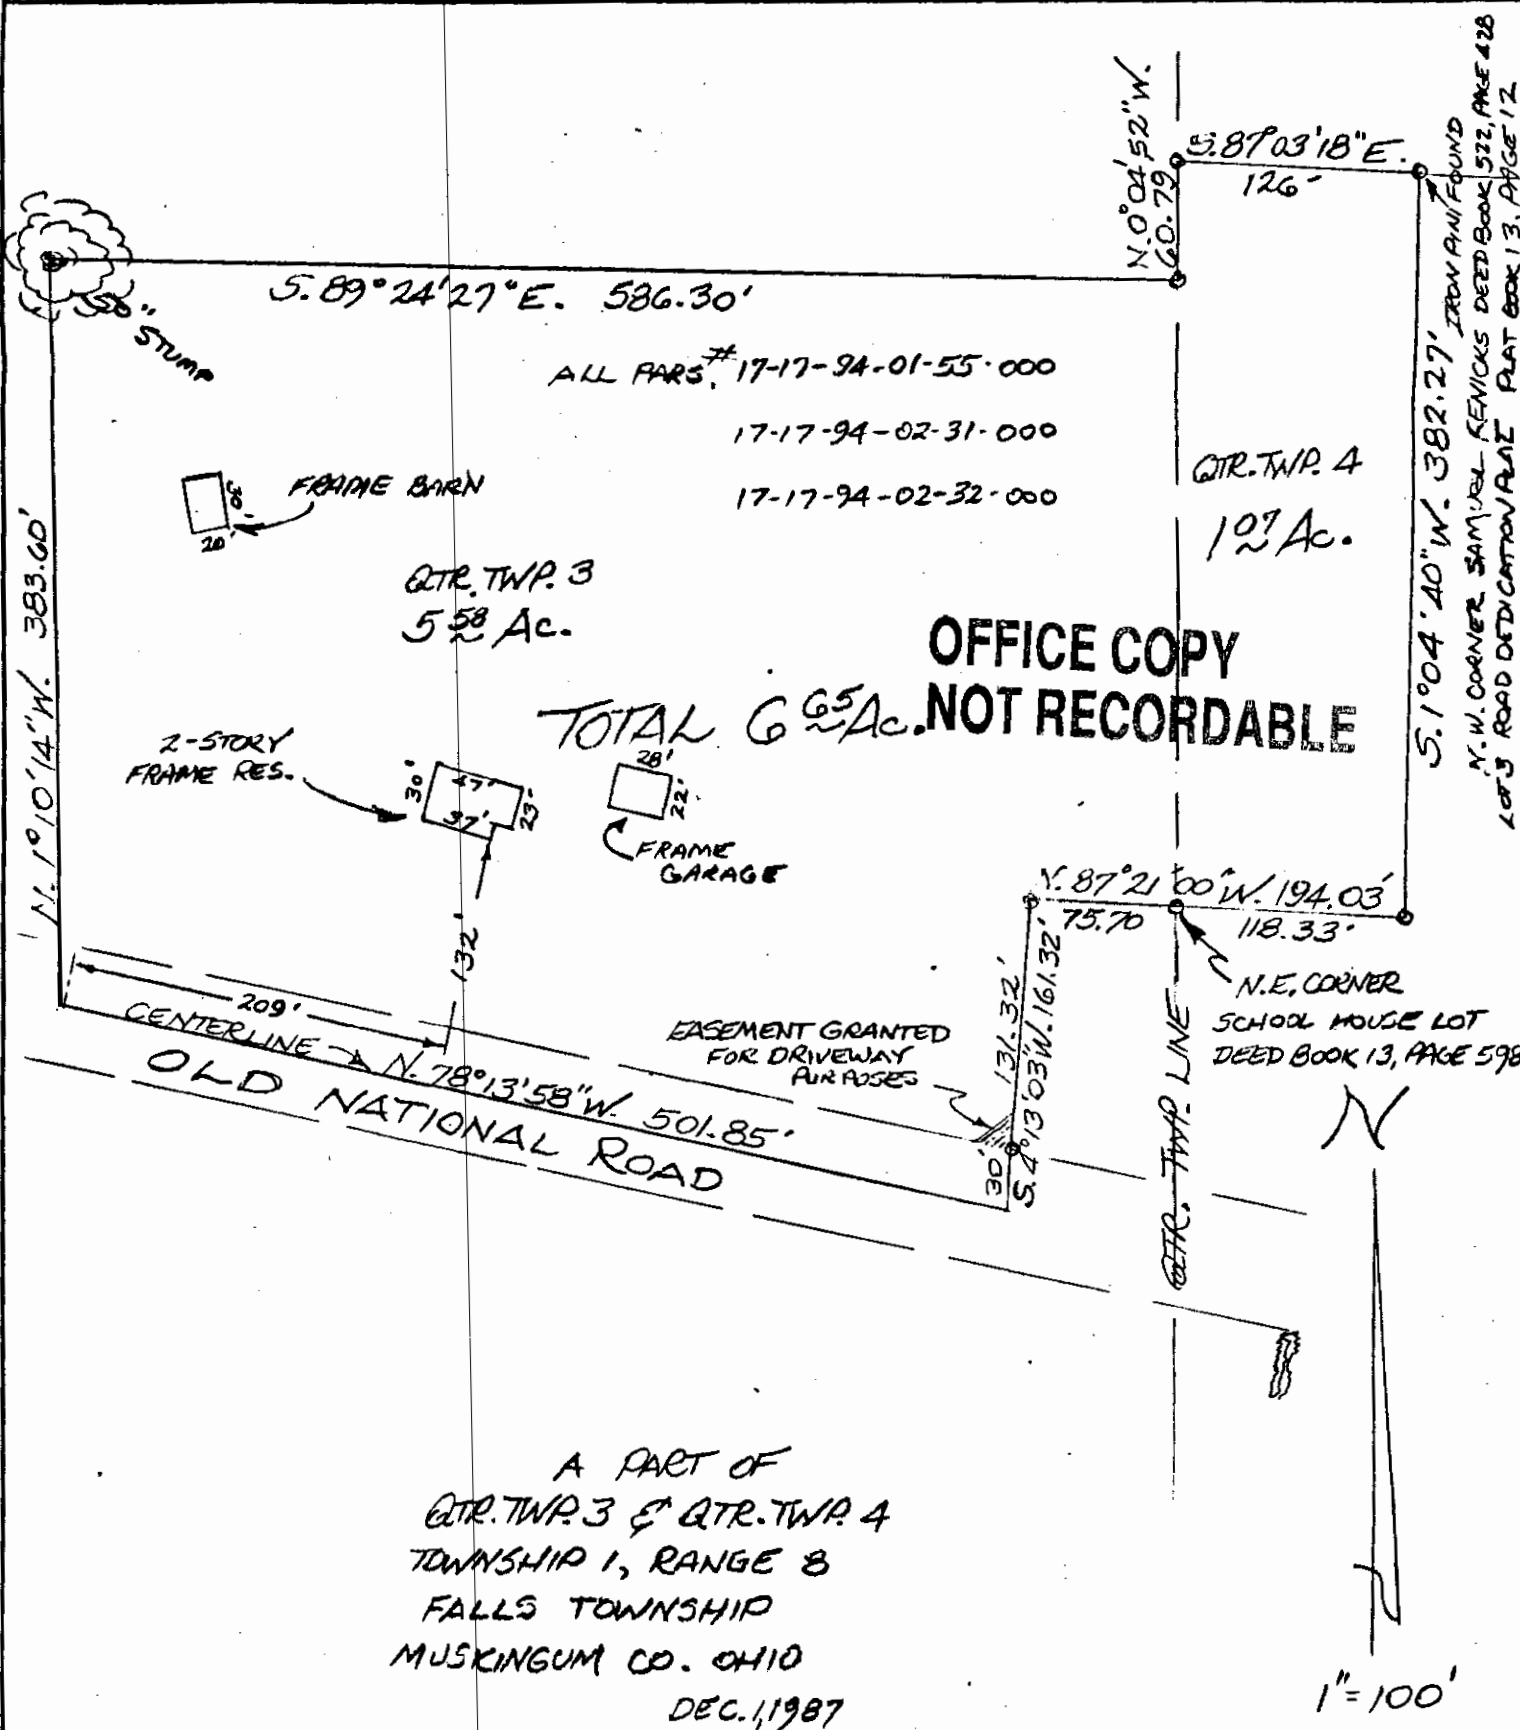 N. 0°04'52" W.
60.79
S. 87°03'18" E.
126'
IRON PIN FOUND
N.W. CORNER SAMUEL FENICKS DEED BOOK 522, PAGE 428
LOT 3 ROAD DEDICATION PLAT PLAT BOOK 13, PAGE 12
S. 89°24'27" E. 586.30'
STUMP
ALL PARS. # 17-17-94-01-55-000
17-17-94-02-31-000
17-17-94-02-32-000
S. 1°04'40" W. 382.27'
QTR. TWP. 4
1 07 Ac.
30'
20'
FRAME BARN
N. 1°10'14" W. 383.60'
QTR. TWP. 3
5 58 Ac.
OFFICE COPY
NOT RECORDABLE
TOTAL 6 65 Ac.
2-STORY
FRAME RES.
30'
47'
37'
23'
28'
22'
FRAME
GARAGE
132'
N. 87°21'00" W. 194.03'
75.70
118.33'
N.E. CORNER
SCHOOL HOUSE LOT
DEED BOOK 13, PAGE 598
209'
CENTERLINE
N. 78°13'58" W. 501.85'
OLD NATIONAL ROAD
EASEMENT GRANTED
FOR DRIVEWAY
PURPOSES
131.32'
S. 4°13'03" W. 161.32'
30'
QTR. TWP. LINE
N
A PART OF
QTR. TWP. 3 & QTR. TWP. 4
TOWNSHIP 1, RANGE 8
FALLS TOWNSHIP
MUSKINGUM CO. OHIO
DEC. 1, 1987
1" = 100'